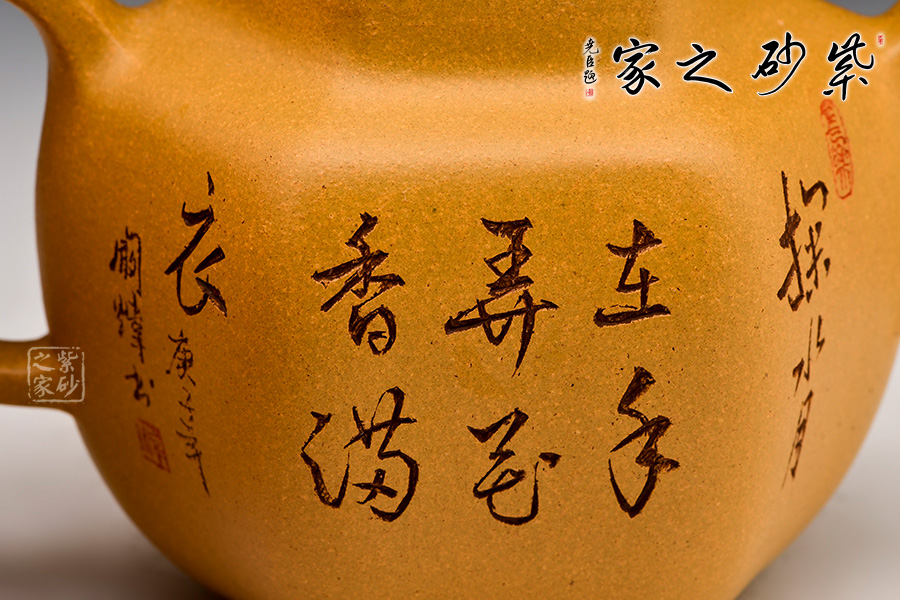 紫砂之家
尧臣题
掬水月
在手
弄花
香满
衣
庚子年
书
紫砂
之家